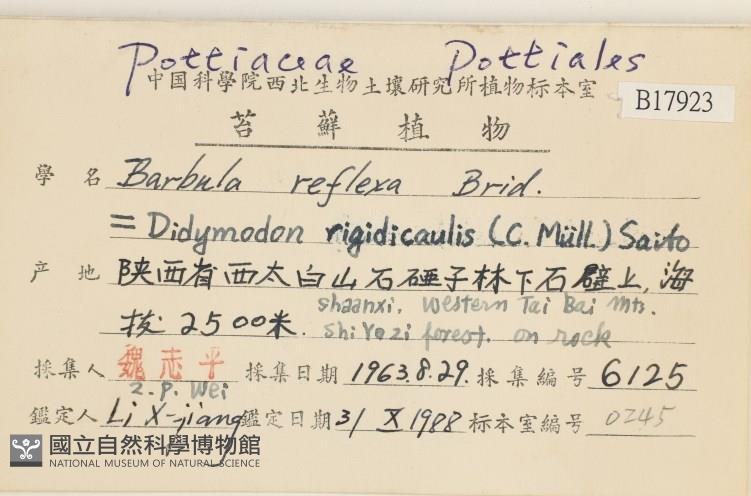 Pottiaceae Pottiales
中国科學院西北生物土壤研究所植物标本室
B17923
苔蘚植物
學名 Barbula reflexa Brid.
= Didymodon rigidicaulis (C. Müll.) Saito
产地 陕西省西太白山石砸子林下石壁上,海
拔2500米. shaanxi, western Tai Bai mts.
shi Yazi forest. on rock
採集人 魏志平 採集日期 1963.8.29. 採集編号 6125
Z.P. Wei
鑑定人 Li X-jiang 鑑定日期 31 X 1988 标本室編号 0245
國立自然科學博物館
NATIONAL MUSEUM OF NATURAL SCIENCE